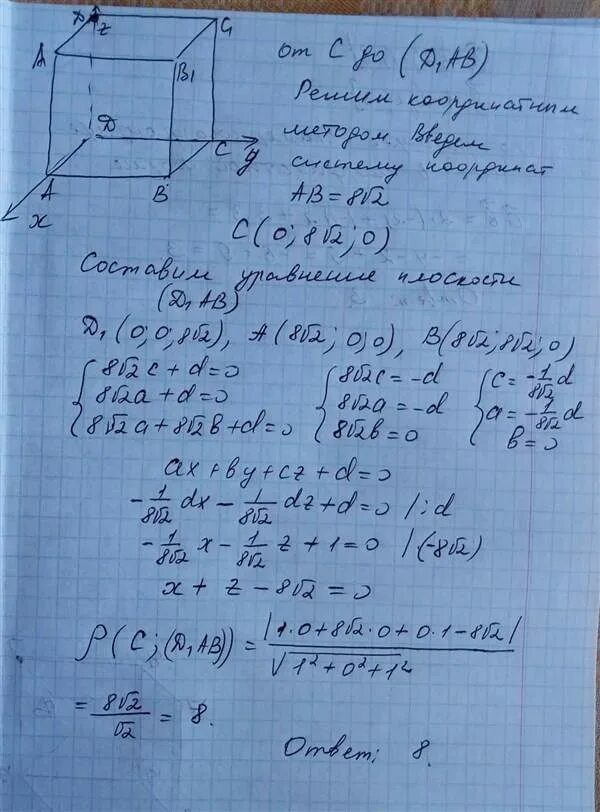 D₁ z C₁
A₁ B₁
D C y
A B
x
от C до (D₁AB)
Решим координатным
методом. Введем
систему координат
AB = 8√2
C(0; 8√2; 0)
Составим уравнение плоскости
(D₁AB)
D₁(0; 0; 8√2), A(8√2; 0; 0), B(8√2; 8√2; 0)
{ 8√2c + d = 0 { 8√2c = -d { c = -1/8√2 d
8√2a + d = 0 8√2a = -d a = -1/8√2 d
8√2a + 8√2b + d = 0 8√2b = 0 b = 0
ax + by + cz + d = 0
-1/8√2 dx - 1/8√2 dz + d = 0 | :d
-1/8√2 x - 1/8√2 z + 1 = 0 | ·(-8√2)
x + z - 8√2 = 0
ρ(C; (D₁AB)) = |1·0 + 8√2·0 + 0·1 - 8√2| / √1² + 0² + 1² =
= 8√2/√2 = 8.
Ответ: 8.